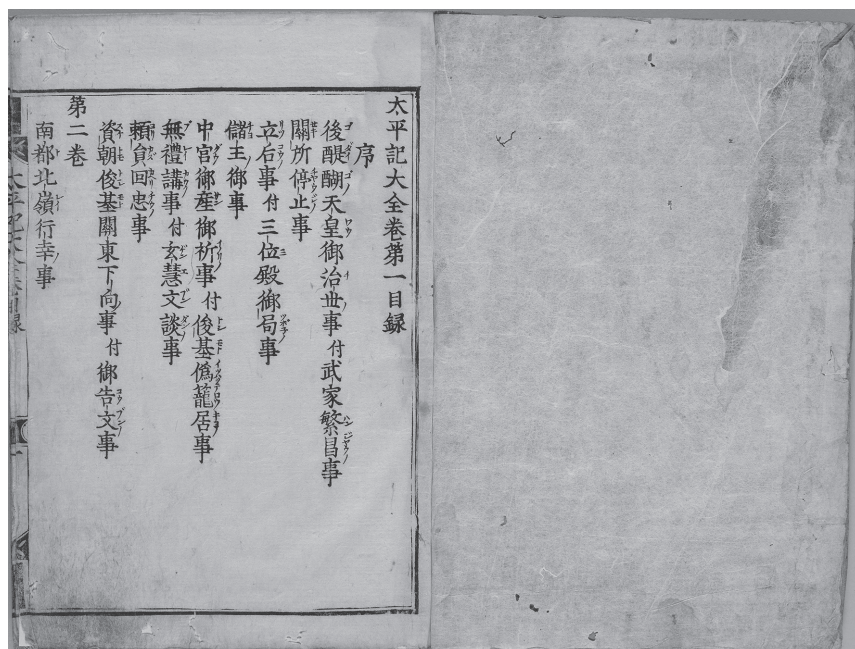 太平記大全卷第一目録
序
後醍醐天皇御治世事付武家繁昌事
關所停止事
立后事付三位殿御局事
儲王御事
中宮御産御祈事付俊基僞籠居事
無禮講事付玄慧文談事
頼員回忠事
資朝俊基關東下向事付御告文事
第二卷
南都北嶺行幸事